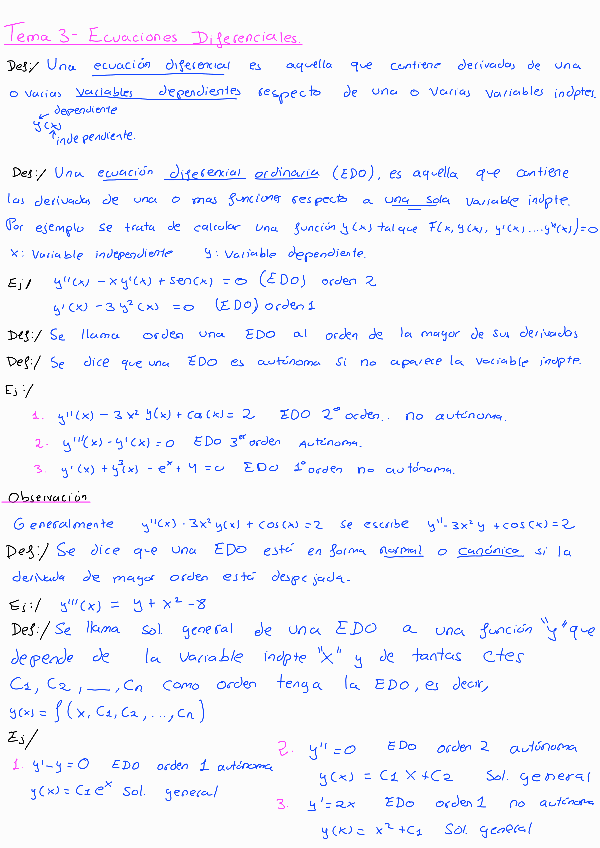 Tema 3- Ecuaciones Diferenciales.
Def:/ Una ecuación diferencial es aquella que contiene derivadas de una
o varias variables dependientes respecto de una o varias variables indptes.
dependiente
y(x)
independiente.
Def:/ Una ecuación diferencial ordinaria (EDO), es aquella que contiene
las derivadas de una o mas funciones respecto a una sola variable indpte.
Por ejemplo se trata de calcular una función y(x) tal que F(x, y(x), y'(x) ... yⁿ(x))=0
x: Variable independiente y: Variable dependiente.
Ej/ y''(x) - xy'(x) + sen(x) = 0 (EDO) orden 2
y'(x) - 3y²(x) = 0 (EDO) orden 1
Def:/ Se llama orden una EDO al orden de la mayor de sus derivadas
Def:/ Se dice que una EDO es autónoma si no aparece la variable indpte.
Ej:/
1. y''(x) - 3x² y(x) + cos(x) = 2 EDO 2º orden.. no autónoma.
2. y'''(x) - y'(x) = 0 EDO 3er orden Autónoma.
3 y'(x) + y³(x) - eˣ + 4 = 0 EDO 1º orden no autónoma.
Observación
Generalmente y''(x) - 3x² y(x) + cos(x) = 2 se escribe y'' - 3x² y + cos(x) = 2
Def:/ Se dice que una EDO está en forma normal o canónica si la
derivada de mayor orden está despejada.
Ej:/ y'''(x) = y + x² - 8
Def:/ Se llama sol. general de una EDO a una función "y" que
depende de la variable indpte "x" y de tantas ctes
C1, C2, __, Cn como orden tenga la EDO, es decir,
y(x) = f(x, C1, C2, ..., Cn)
Ej/
1. y' - y = 0 EDO orden 1 autónoma
y(x) = C1 eˣ Sol. general
2. y'' = 0 EDO orden 2 autónoma
y(x) = C1 X + C2 Sol. general
3. y' = 2x EDO orden 1 no autónoma
y(x) = x² + C1 Sol. general